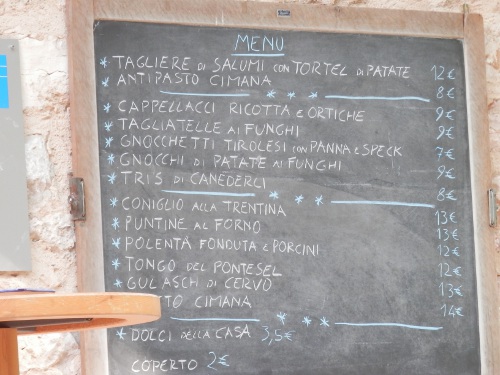 MENU
* TAGLIERE DI SALUMI CON TORTEL DI PATATE 12€
* ANTIPASTO CIMANA 8€
* CAPPELLACCI RICOTTA E ORTICHE 9€
* TAGLIATELLE AI FUNGHI 9€
* GNOCCHETTI TIROLESI CON PANNA E SPECK 7€
* GNOCCHI DI PATATE AI FUNGHI 9€
* TRIS DI CANEDERLI 8€
* CONIGLIO ALLA TRENTINA 13€
* PUNTINE AL FORNO 13€
* POLENTA FONDUTA E PORCINI 12€
* TONGO DEL PONTESEL 12€
* GULASCHI DI CERVO 13€
CIMANA 14€
* DOLCI DELLA CASA 3,5€
COPERTO 2€